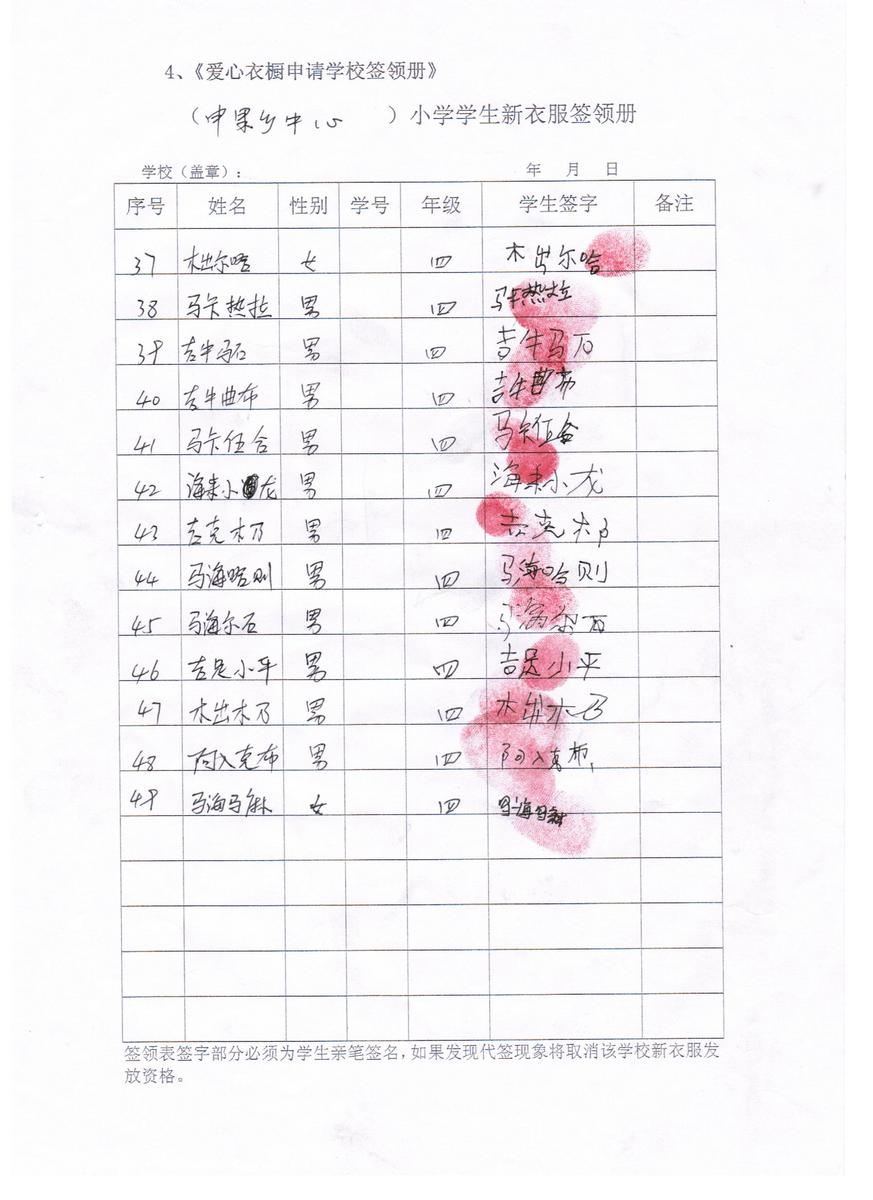 4、《爱心衣橱申请学校签领册》
（申果乡中心 ）小学学生新衣服签领册
学校（盖章）： 年 月 日
序号 姓名 性别 学号 年级 学生签字 备注
37 木出尔哈 女 四 木出尔哈
38 马卡热拉 男 四 马卡热拉
39 吉牛马石 男 四 吉牛马石
40 吉牛曲布 男 四 吉牛曲布
41 马卡伍合 男 四 马卡伍合
42 海来小龙 男 四 海来小龙
43 吉克木乃 男 四 吉克木
44 马海哈则 男 四 马海哈则
45 马海尔石 男 四 马海尔石
46 吉足小平 男 四 吉足小平
47 木出木乃 男 四 木出木乃
48 阿入克布 男 四 阿入克布
49 马海马麻 女 四 马海马麻
签领表签字部分必须为学生亲笔签名，如果发现代签现象将取消该学校新衣服发
放资格。